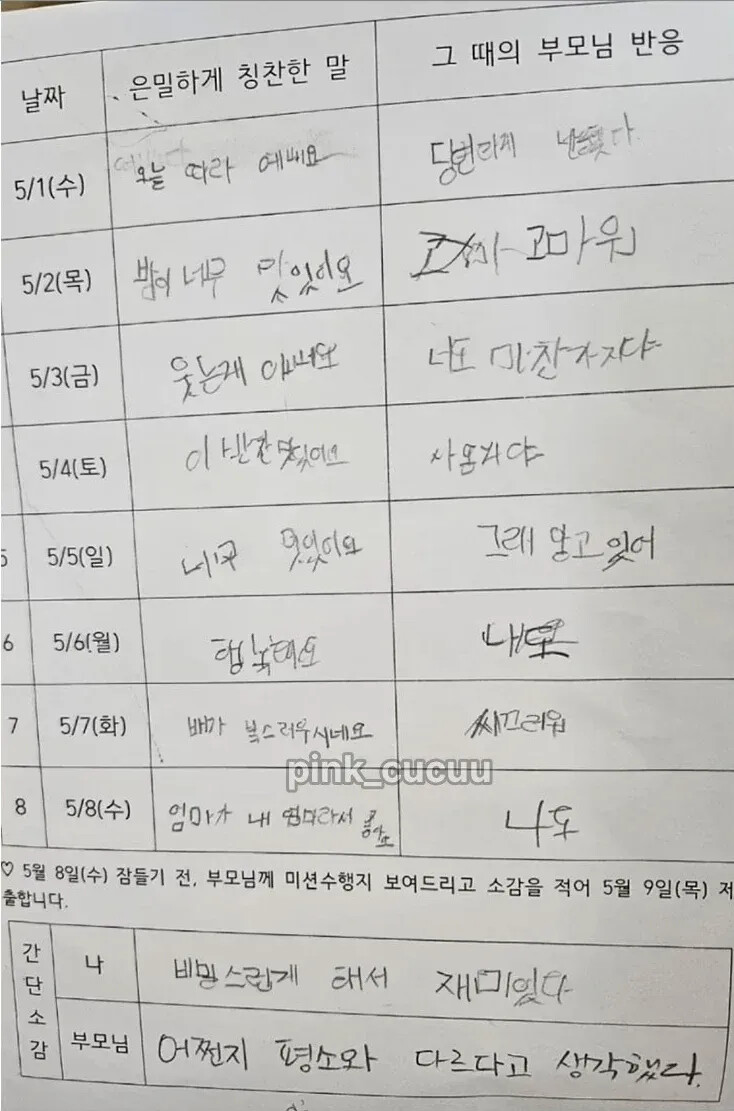 날짜 은밀하게 칭찬한 말 그 때의 부모님 반응
5/1(수) 오늘 따라 에뻐요 당연하게
5/2(목) 밤이 네무 맛있어요 고마워
5/3(금) 웃는게 이뻐요 너도 마찬가지야
5/4(토) 이 반찬 맛잇어요
5/5(일) 네무 멋있어요 그래 알고 있어
5 6 5/6(월) 행복해요 내도
7 5/7(화) 배가 복스러우시네요 씨끄러워
pink_cucuu
8 5/8(수) 엄마가 내 엄마라서 좋아요 나도
♡ 5월 8일(수) 잠들기 전, 부모님께 미션수행지 보여드리고 소감을 적어 5월 9일(목) 제
출합니다.
간단소감 나 비밀스럽게 해서 재미있다
부모님 어쩐지 평소와 다르다고 생각했다.